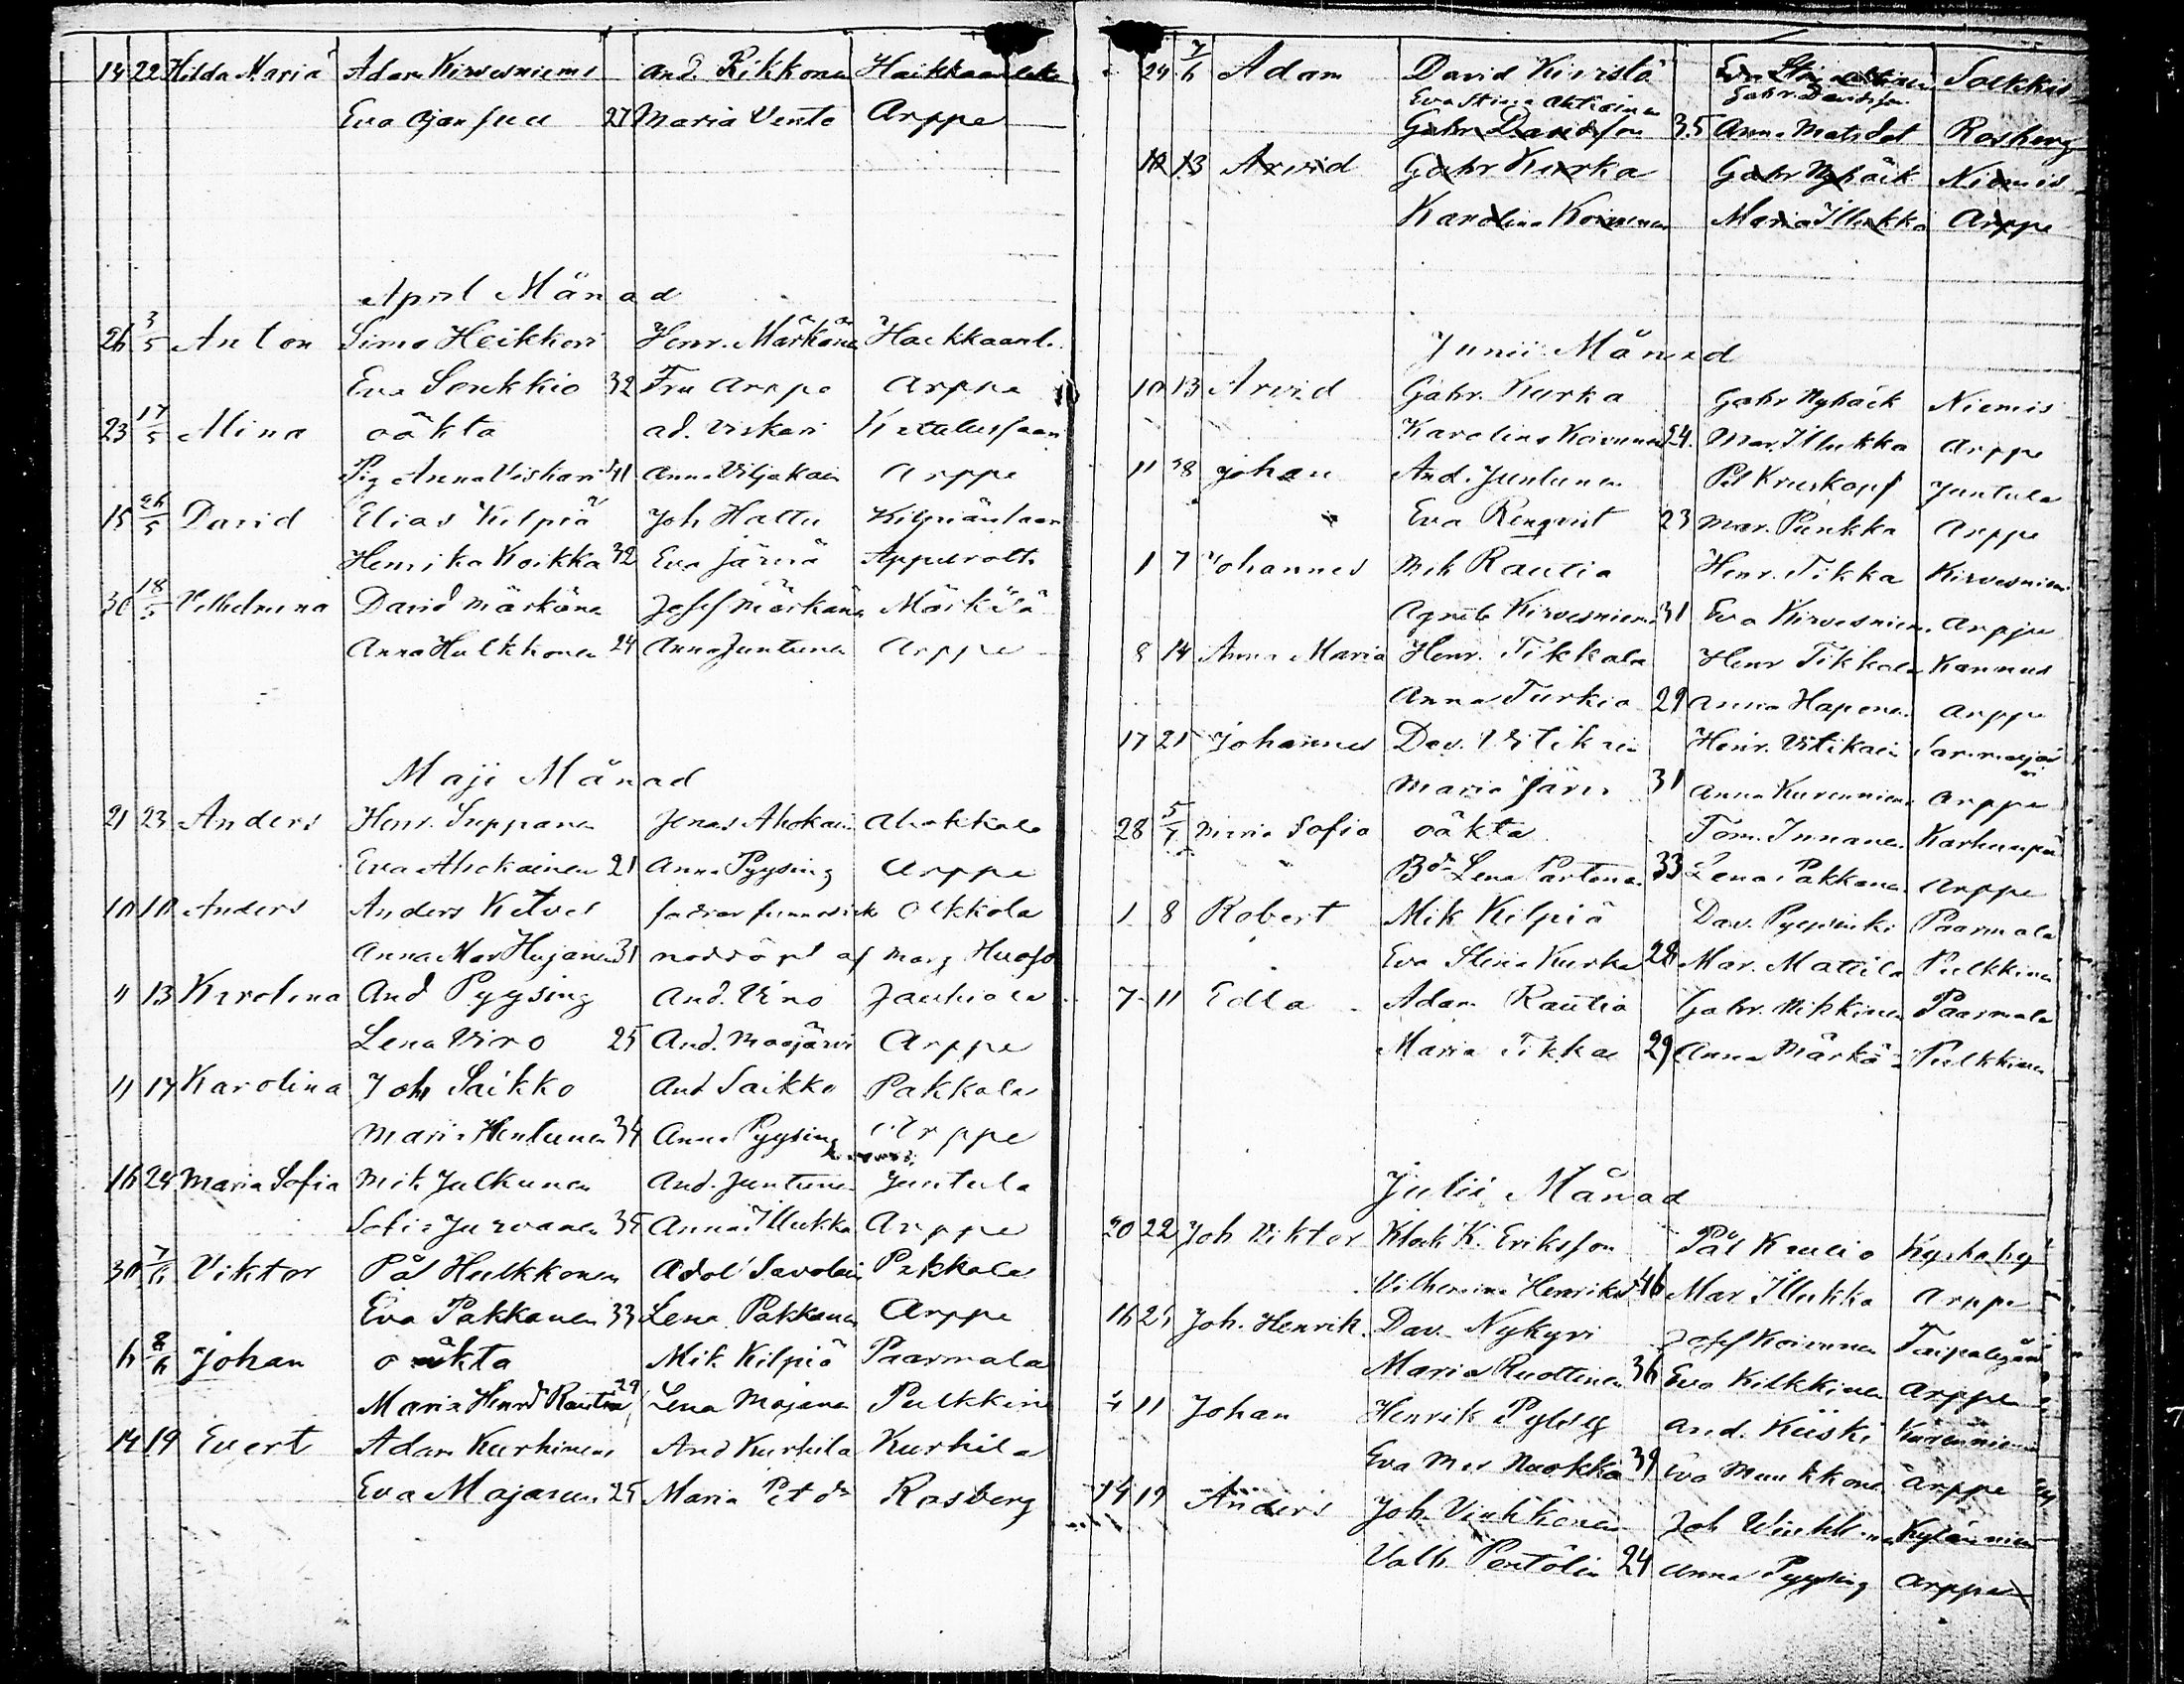 14 22 Hilda Maria Adam Kirvesniemi And. Rikkonen Haikkaanlaks
Eva Ojansuu 27 Maria Vento Arppe
April Månad
26 3/5 Anton Simo Heikkeri Henr. Märkäne Haikkaanl.
Eva Soukkio 32 Fru Arppe Arppe
23 17/5 Mina oäkta ad. Viskari
Pig Anna Viskari 41 Anna Viljakain Arppe
15 26/5 David Elias Kilpiä Joh Hattu Kilpiänlaan
Henrika Koikka 32 Eva Järvä
30 18/5 Vilhelmina David Märkäne Josef Märkäne Märkälä
Anna Hulkkonen 24 Anna Juntunen Arppe
Maji Månad
21 23 Anders Henr. Suppanen Jonas Ahokain Ahokkala
Eva Ahokainen 21 Anna Pyysing Arppe
10 10 Anders Anders Ketvel Olkkola
Anna Mar Hujanen 31 nöddöpt af Marg Huoso
11 13 Karolina And Pyysing And. Viro Jauhiala
Lena Viro 25 And. Maajärvi Arppe
11 17 Karolina Joh Saikko And Saikko Pakkala
Maria Henlunen 34 Anna Pyysing Arppe
16 24 Maria Sofia Mik Julkunen And. Juntunen Juntula
Sofia Jurvanen 35 Anna Illukka Arppe
30 7/6 Viktor Pål Hulkkonen Adolf Savolain Pakkala
Eva Pakkanen 33 Lena Pakkanen Arppe
6 8/6 Johan oäkta Mik Kilpiä Paarmala
Maria Henrd Rautia 29 Lena Mojanen Pulkkine
14 19 Evert Adam Kurhinen And Kurhila Kurhila
Eva Majanen 25 Maria Pet dr Rosberg
24 7/6 Adam David Kivistö Eva Stina Ahtiainen Solkkis
Eva Stina Ahtiainen Gabr. Davidsson
Gabr. Davidson 35 Anna Matsdot Rosberg
10 13 Arvid Gabr Kurka Gabr Nybäck Niemis
Karolina Koivunen Maria Illukka Arppe
Junii Månad
10 13 Arvid Gabr. Kurka Gabr Nybäck Niemis
Karolina Koivunen 24. Mar. Illukka Arppe
11 Johan And. Juntunen Pet Kruskopf Juntula
Eva Renqvist 23 Mar. Punkka Arppe
1 7 Johannes Mik Rautia Henr. Tikka Kirvesniemi
Agneta Kirvesniemi 31 Eva Kirvesniem. Arppe
8 14 Anna Maria Henr. Tikkala Henr Tikkala Kannus
Anna Turkia 29 Anna Haponen Arppe
17 21 Johannes Dav. Vitikain Henr. Vitikain
Maria Järvi 31 Anna Kurenniem Arppe
28 5/7 Maria Sofia oäkta Tom. Innanen Karhunpä
Bdr Lena Partanen 33 Lena Pakkanen Arppe
1 8 Robert Mik Kilpiä Dav. Paarmala
Eva Stina Kurka 28 Mar. Mattila Pulkkinen
7 11 Edla Adam Rautia Gabr. Mikkinen Paarmala
Maria Tikka 29 Anna Märkä Pulkkinen
Julii Månad
20 22 Joh Viktor Klock K. Eriksson Pål Kaulio Kyrkoby
Vilhelmina Henriksd 46 Mar Illukka Arppe
16 25 Joh. Henrik. Dav. Nykyri Josef Koivunen Taipalsgård
Maria Ruottinen 36 Eva Kilkkinen Arppe
11 Johan Henrik And. Kiiski Kurenniemi
Eva Mar Nuokka 39 Eva Muukkone Arppe
14 19 Anders Joh. Vinhkonen Joh Kylänniem
Valb. Pentälin 24 Anna Pyysing Arppe